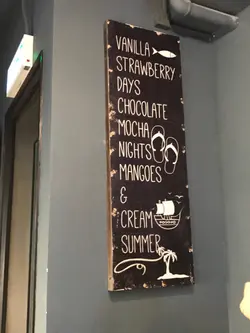 VANILLA
STRAWBERRY
DAYS
CHOCOLATE
MOCHA
NIGHTS
MANGOES
&
CREAM
SUMMER